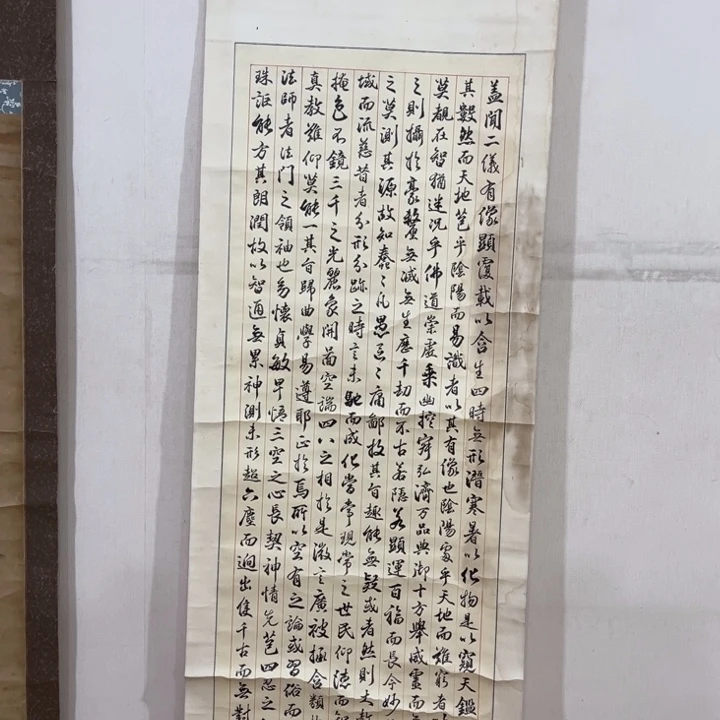 盖聞二儀有像顯覆載以含生四時無形潛寒暑以化物是以窺天鑑
其數然而天地苞乎陰陽而易識者以其有像也陰陽處乎天地而難窮者以
莫覩在智猶迷況乎佛道崇虛乘幽控寂弘濟万品典御十方舉威靈而
之則攝於豪釐無滅無生歷千劫而不古若隱若顯運百福而長今妙
之莫測其源故知蠢々凡愚區々庸鄙投其旨趣能無疑或者然則大教
域而流慈昔者分形分跡之時言未馳而成化當常現常之世民仰德而知
掩色不鏡三千之光麗象開啚空端四八之相於是微言廣被拯含類於
真教難仰莫能一其旨歸曲學易遵耶正於焉所以空有之論或習俗而
法師者法門之領袖也幼懷貞敏早悟三空之心長契神情先苞四忍之
珠詎能方其朗潤故以智通無累神測未形超六塵而迥出隻千古而無對